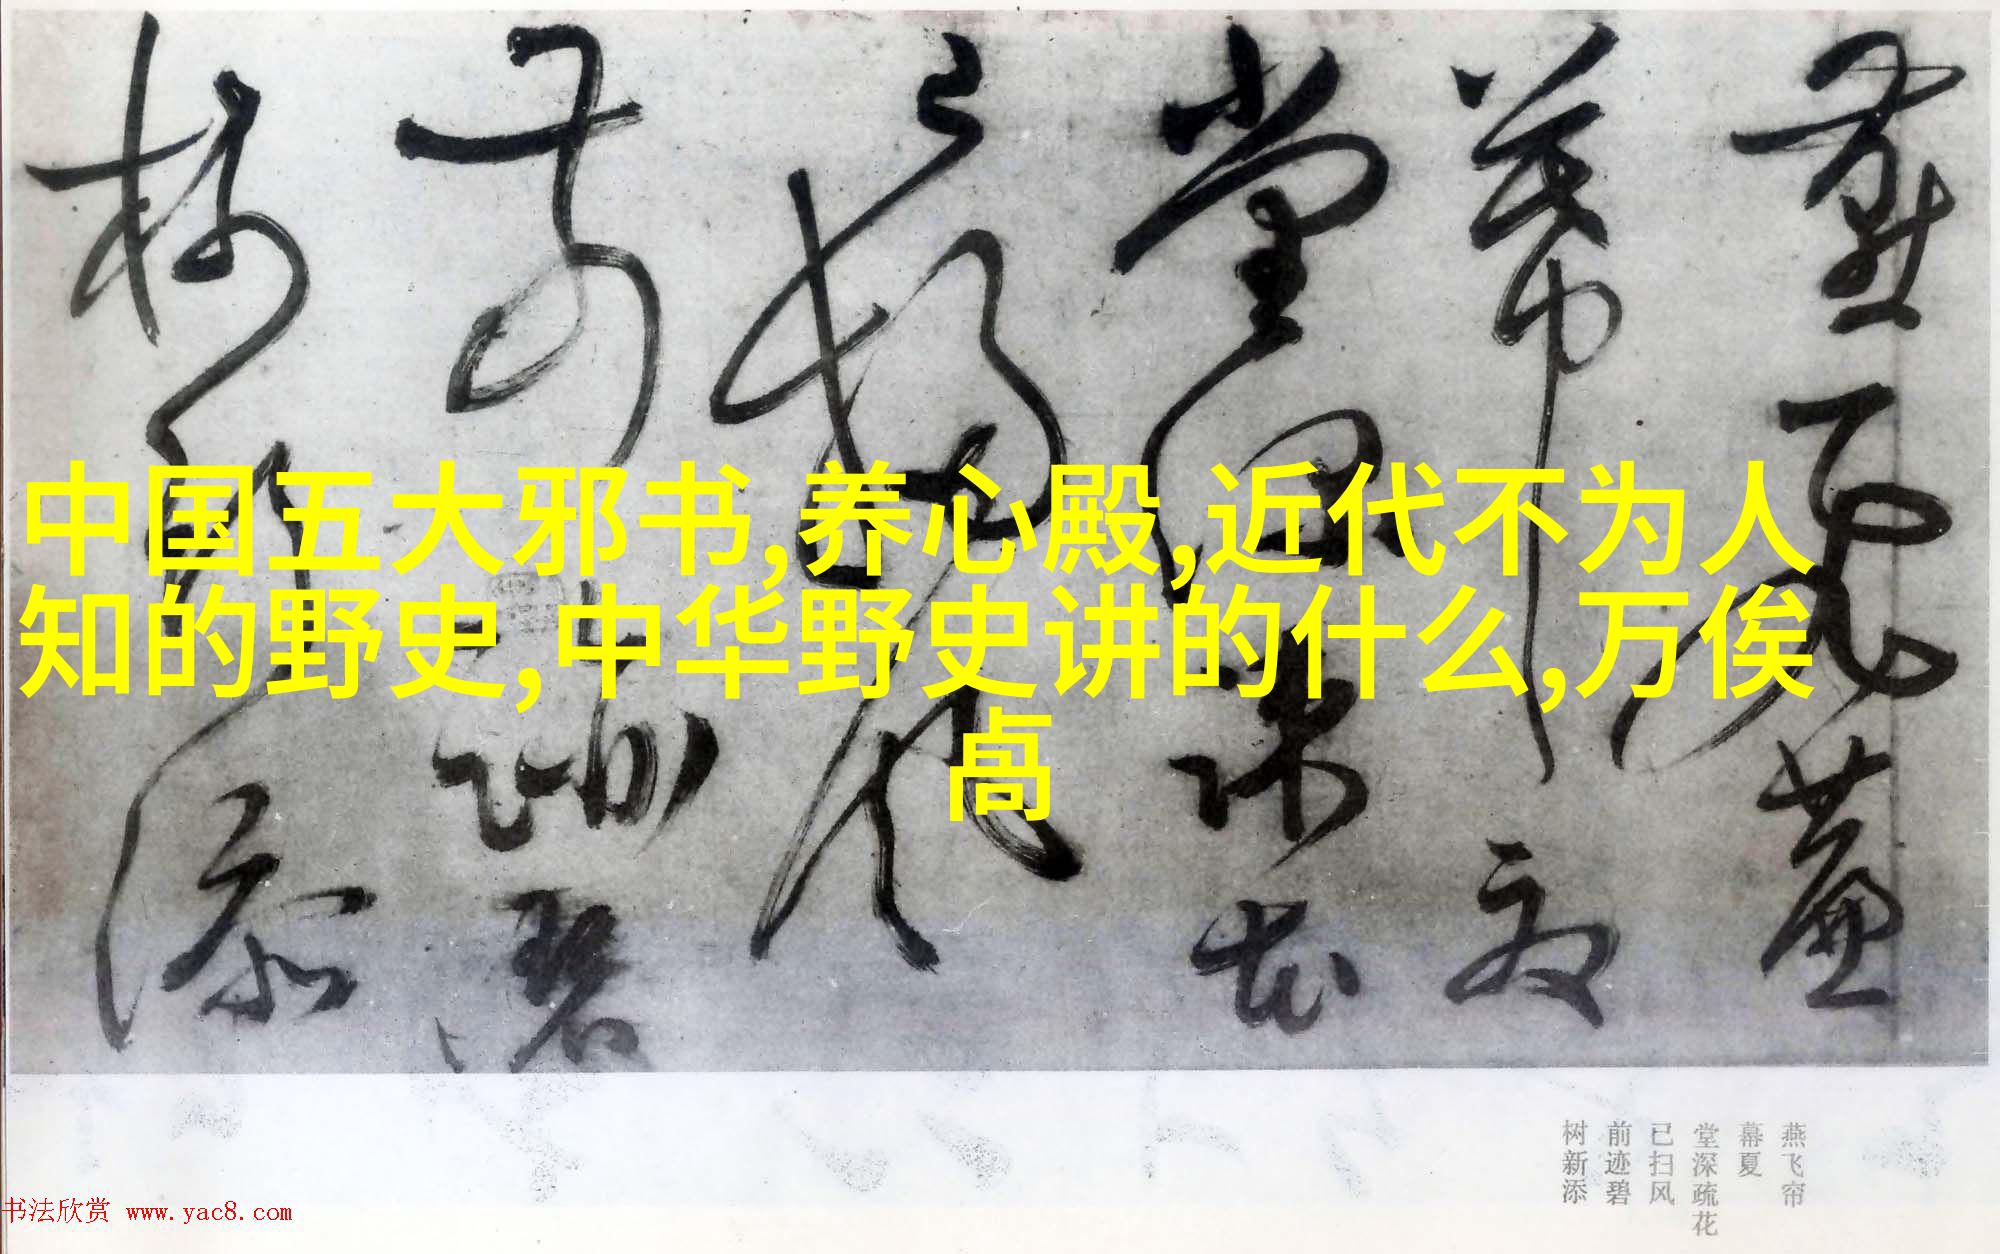 中国五大邪书,养心殿,近代不为人
知的野史,中华野史讲的什么,万俟
卨
燕飞帘
幕夏
堂深疏花
已扫风
前迹碧
树新添
书法欣赏 www.yac8.com